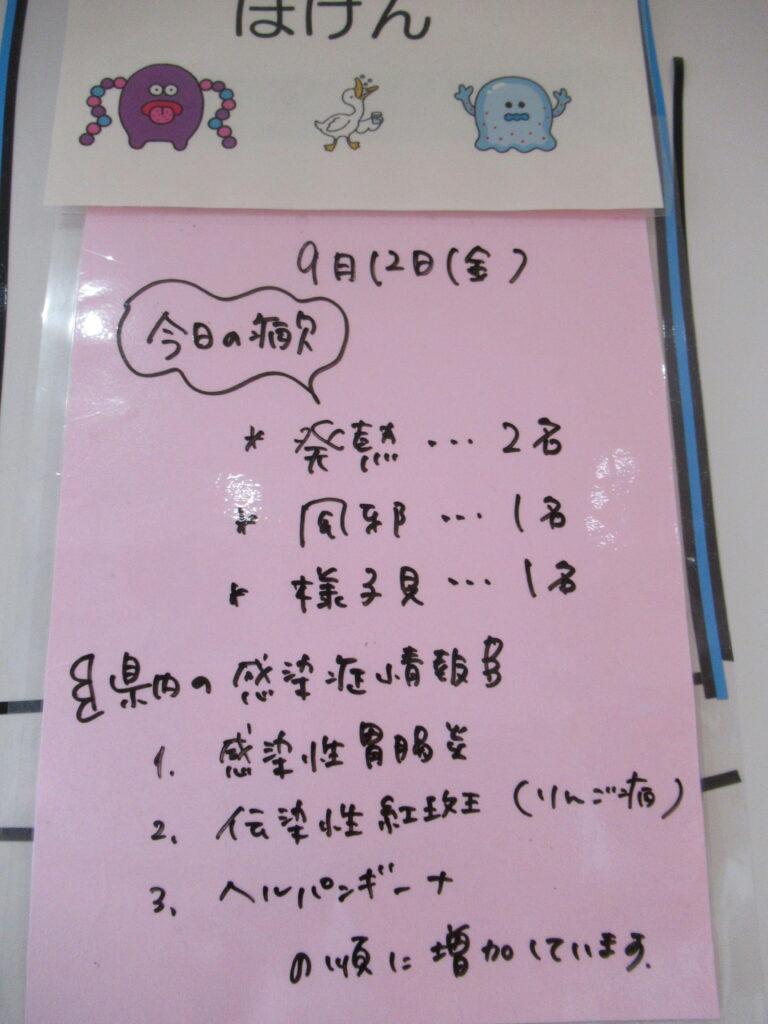 ほけん
9月12日(金)
今日の病欠
* 発熱 … 2名
* 風邪 … 1名
* 様子見 … 1名
県内の感染症情報
1. 感染性胃腸炎
2. 伝染性紅斑 (りんご病)
3. ヘルパンギーナ
の順に増加しています.